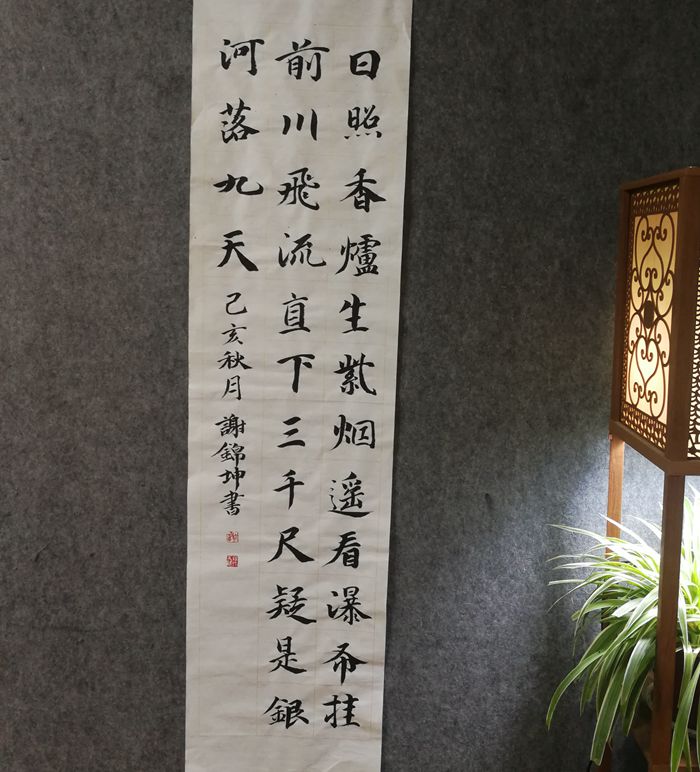 日照香爐生紫烟遥看瀑布挂
前川飛流直下三千尺疑是銀
河落九天
己亥秋月謝錦坤書